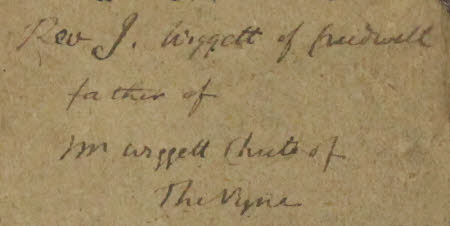 Rev J. Wiggett of Crudwell
father of
Mr Wiggett Chute of
The Vyne